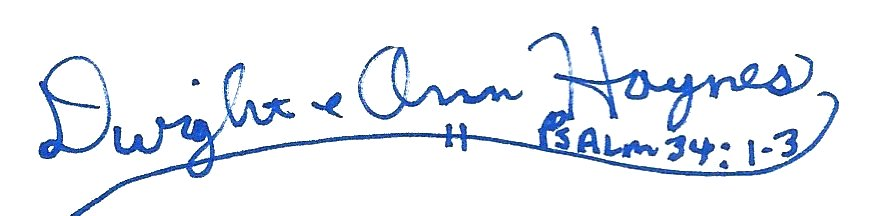 Dwight & Ann Haynes
Psalm 34:1-3